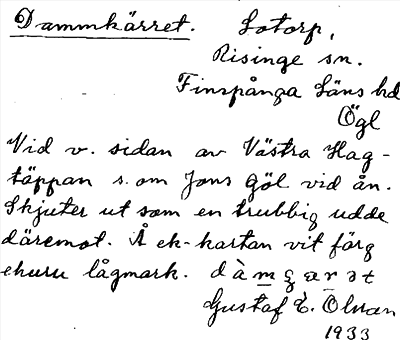 Dammkärret. Lotorp,
Risinge sn.
Finspånga Läns hd
Ögl
Vid v. sidan av Västra Hag-
täppan s. om Jons Göl vid ån.
Skjuter ut som en trubbig udde
däremot. Å ek-kartan vit färg
ehuru lågmark.
Gustaf E. Olsson
1933